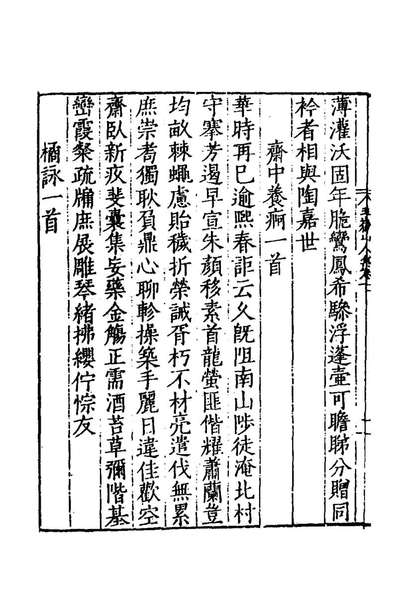 薄灌沃固年脆鸞鳳希驂浮蓬壺可瞻睇分贈同
衿者相與陶嘉世
齋中養痾一首
華時再已逾熙春詎云久旣阻南山陟徒淹北村
守搴芳遏早宣朱顏移素首龍螢匪偕耀蕭蘭豈
均畝棘蠅慮貽穢折榮誠胥朽不材亮遣伐無累
庶崇耉獨耿負鼎心聊軫操築手麗日違佳歡空
齋臥新疚斐囊集妄藥金觴正需酒苔草彌階基
巒霞粲疏牖庶展雕琴緒拂纓佇悰友
橘詠一首